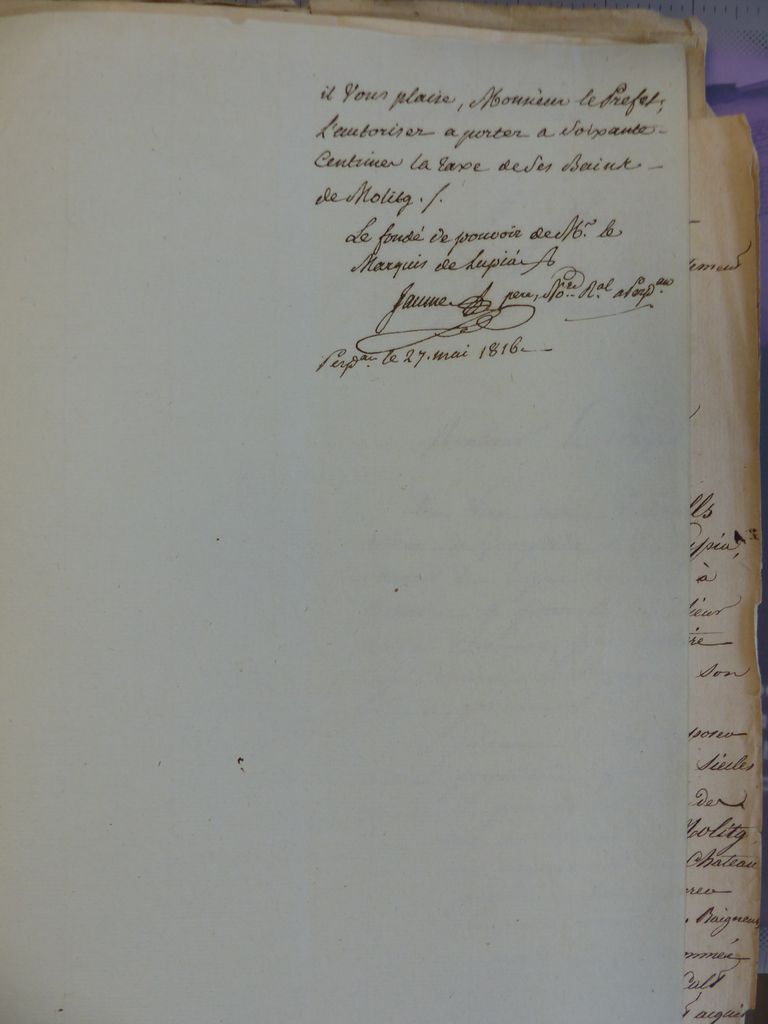 il Vous plaise, Monsieur le Prefet,
L'autoriser a porter a Soixante
Centimes la taxe de Ses Bains
de Molitg ./.
Le fondé de pouvoir de Mr. le
Marquis de Lupiá
Jaume pere, Nore. Ral. a Perpan
Perpan. le 27. mai 1816.
lls
upia,
à
son
siecles
des
Molitg
Chateau
Baigneurs